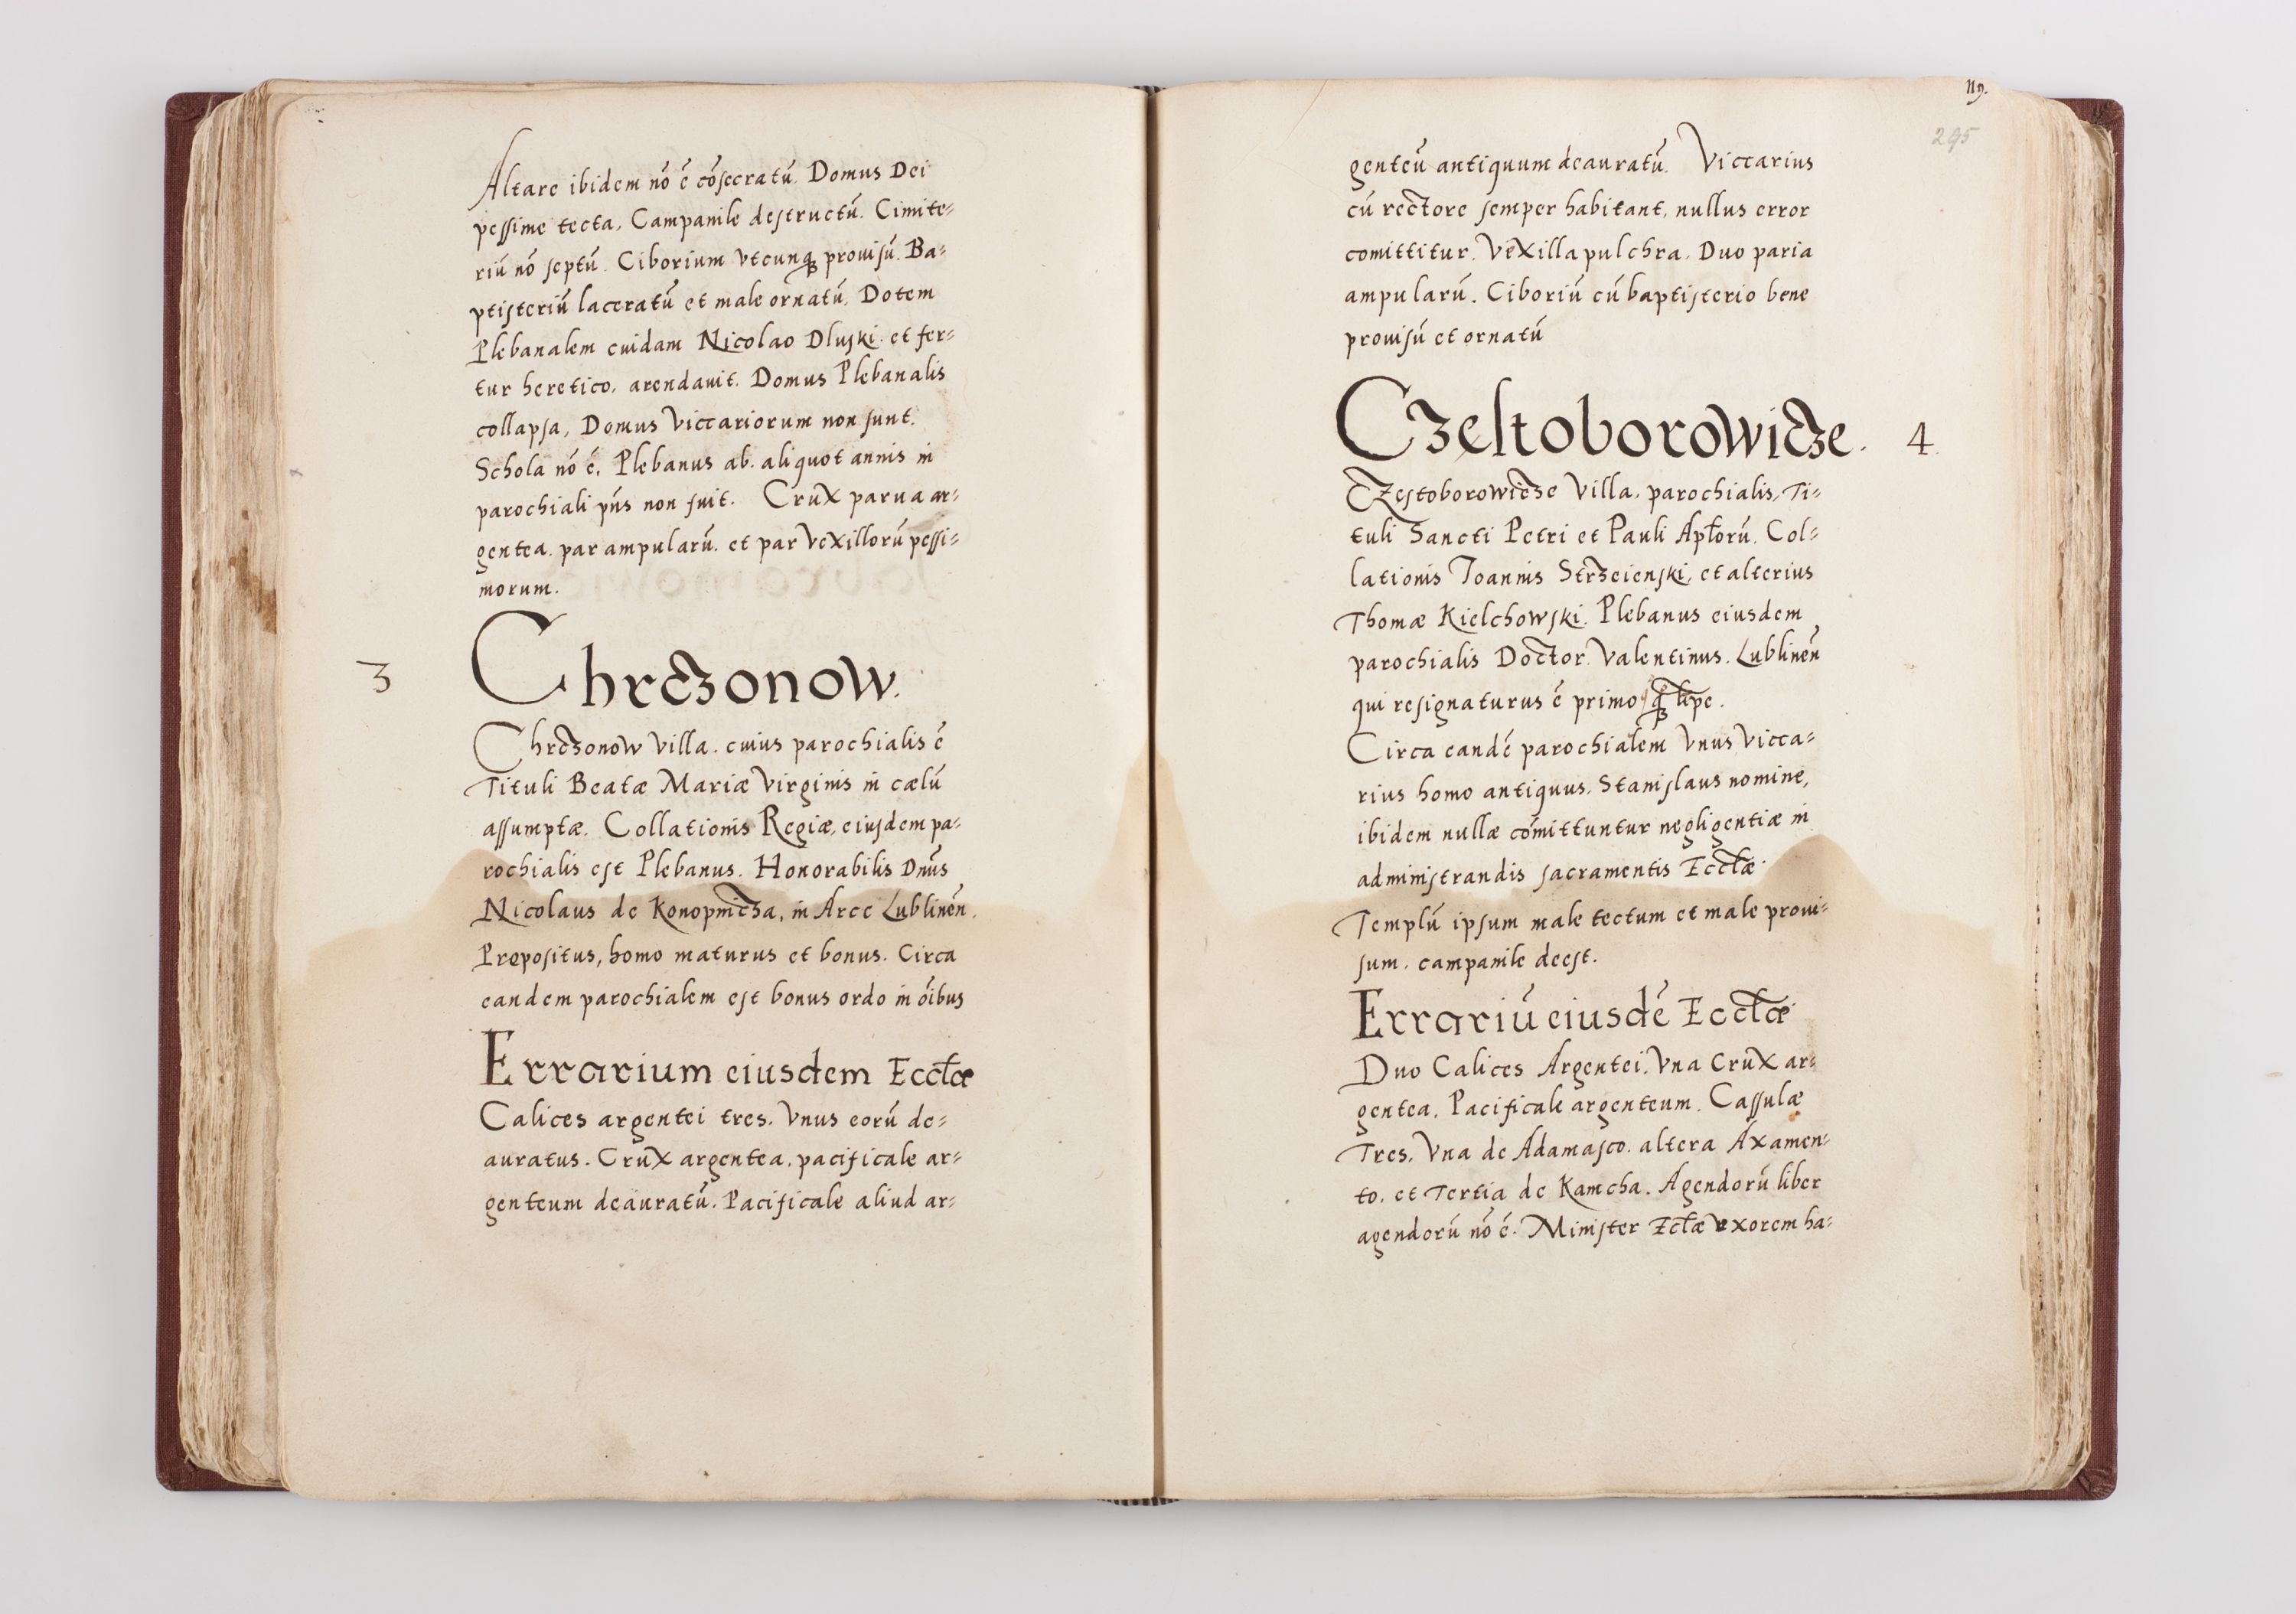 Altare ibidem nō ē cōsecratū. Domus Dei
pessime tecta, Campanile destructū. Cimite=
riū nō septū. Ciborium vtcunq₃ prouisū. Ba=
ptisteriū laceratū et male ornatū. Dotem
Plebanalem cuidam Nicolao Dluski. et fer=
tur heretico. arendauit. Domus Plebanalis
collapsa, Domus Viccariorum non sunt.
Schola nō ē, Plebanus ab. aliquot annis in
parochiali pn̄s non fuit. Crux parua ar=
gentea. par ampularū. et par Vexillorū pessi=
morum.
3
Chrczonow.
Chrczonow Villa. cuius parochialis ē
Tituli Beatæ Mariæ Virginis in cælū
assumptæ. Collationis Regiæ, eiusdem pa=
rochialis est Plebanus. Honorabilis Dn̄us
Nicolaus de Konopnicza, in Arce Lublinen̄.
Prepositus, homo maturus et bonus. Circa
eandem parochialem est bonus ordo in ōibus
Errarium eiusdem Eccl̄æ
Calices argentei tres. Vnus eorū de=
auratus. Crux argentea. pacificale ar=
genteum deauratū. Pacificale aliud ar=
119.
295
genteū antiquum deauratū. Viccarius
cū rectore semper habitant, nullus error
comittitur. Vexilla pulchra. Duo paria
ampularū. Ciboriū cū baptisterio bene
prouisū et ornatū
Czestoborowicze. 4.
Czestoborowicze Villa. parochialis, Ti=
tuli Sancti Petri et Pauli Apl̄orū. Col=
lationis Joannis Strzeienski, et alterius
Thomæ Kielchowski. Plebanus eiusdem
parochialis Doctor Valentinus. Lublinen̄
qui resignaturus ē primo q₃ tp̄e.
Circa eandē parochialem Vnus Vicca=
rius homo antiquus. Stanislaus nomine,
ibidem nullæ cōmittuntur negligentiæ in
administrandis sacramentis Eccl̄æ
Templū ipsum male tectum et male proui=
sum. campanile deest.
Errariū eiusdē Eccl̄æ
Duo Calices Argentei. Vna Crux ar=
gentea. Pacificale argenteum. Cassulæ
Tres. Vna de Adamasco. altera Axamen=
to. et Tertia de Kamcha. Agendorū liber
agendorū nō ē. Minister Ecl̄æ Vxorem ha=